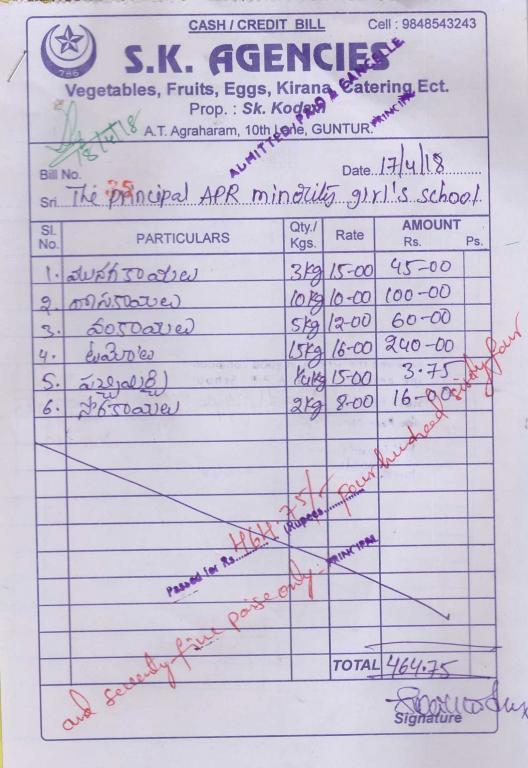 CASH / CREDIT BILL Cell : 9848543243
786
S.K. AGENCIES
Vegetables, Fruits, Eggs, Kirana, Catering Ect.
Prop. : Sk. Kodavali
A.T. Agraharam, 10th Lane, GUNTUR.
ADMITTED PAID & CANCELLE
PRINCIPAL
18/4/18
Bill No. 35 Date 17/4/18
Sri. The principal APR minority girl's school
Sl. No. PARTICULARS Qty./ Kgs. Rate AMOUNT Rs. Ps.
1. మునగకాయలు 3kg 15-00 45-00
2. దోసకాయలు 10kg 10-00 100-00
3. వంకాయలు 5kg 12-00 60-00
4. టమోటాలు 15kg 16-00 240-00
5. పచ్చిమిర్చి 1/4kg 15-00 3.75
6. సొరకాయలు 2kg 8-00 16-00
Passed for Rs. 464.75/- (Rupees Four hundred sixty four
and seventy five paise only.
PRINCIPAL
TOTAL 464.75
Signature